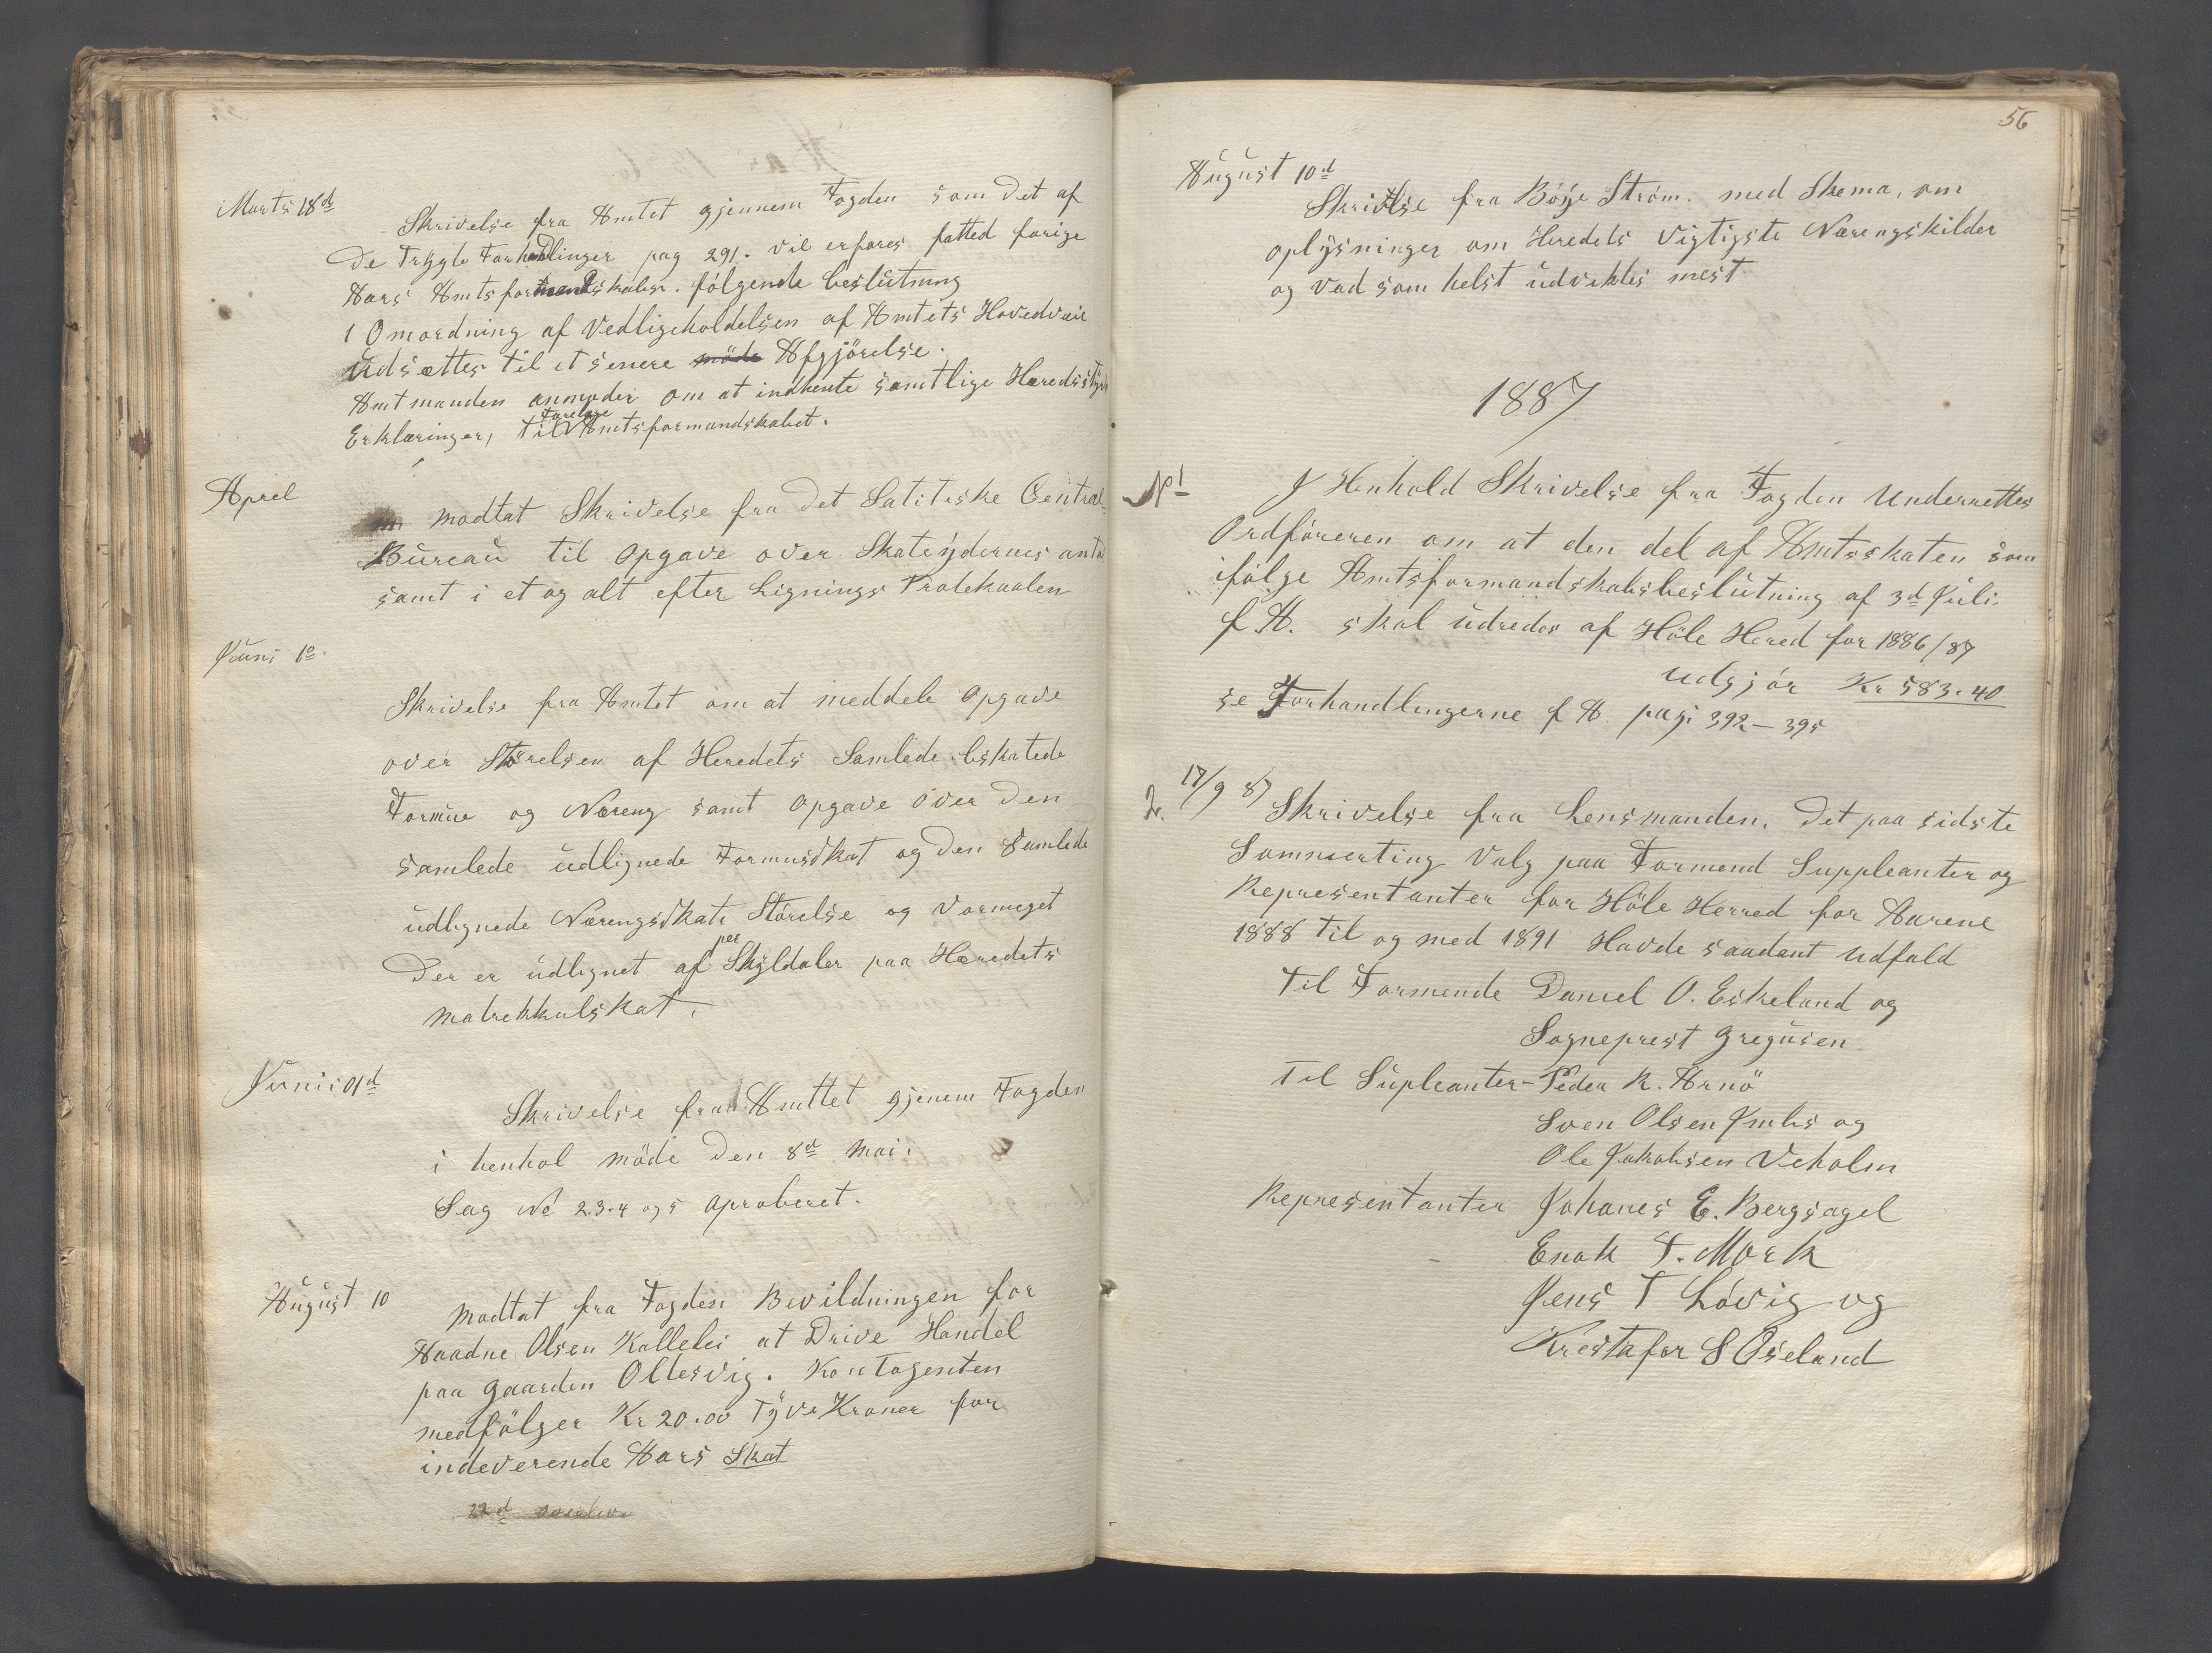 Marts 18d
Skrivelse fra Amtet gjennem Fogden som det af
de Trygte Forhandlinger pag 291. vil erfores fatted forige
Aars Amtsformendskabs. følgende beslutning
1 Omordning af Vedligeholdelsen af Amtets Hovedveie
udsættes til et senere möde Afgjörelse.
Amtmanden anmoder om at indhente samtlige Heredsstyre
Erklæringer, til Forelæge Amtsformandskabet.
April
modtat Skrivelse fra det Satitiske Central-
Büreau til Opgave over Skateydernes antal
samt i et og alt efter Lignings Protekaalen
Juni 1o
Skrivelse fra Amtet om at meddele Opgave
over Störelsen af Heredets Samlede beskatede
Formue og Næreng samt Opgave over den
samlede udlignede Formuskat og den samlede
udlignede Nærengsskats Störelse og Vormeget
der er udlignet af per Skyldaler paa Heredets
matrekkulskat.
Junii 01d
Skrivelse fra Amttet gjenem Fogden
i henhol möde den 8d Mai.
Sag No 2.3.4 og 5 aproberet.
August 10
Modtat fra Fogden Bevildningen for
Aadne Olsen Kallelei at Drive Handel
paa gaarden Ollesvig. Kontogenten
medfölger Kr 20.00 Tyve Kroner for
indeverende Aars Skat
22d
56
August 10d
Skrivelse fra Böye Ström. med Skema, om
oplysninger om Heredets Vigtigste Nærengskilder
og vad som helst udvikles mest
1887
No 1
I Henhold Skrivelse fra Fogden Underrettes
Ordföreren om at den del af Amtsskaten som
ifölge Amtsformandskabsbeslutning af 3d Juli.
f. A. skal udredes af Höle Hered for 1886/87
udgjör Kr 583.40
se Forhandlingerne f A pagi 392-395
2. 17/9 87
Skrivelse fra Lensmanden. Det paa sidste
Sommerting Valg paa Formend Suppleanter og
Representanter for Höle Herred for Aarene
1888 til og med 1891 Havde saadant Udfald
Til Formende Daniel O. Eskeland og
Sogneprest Gregusen
Til Supleanter- Peder R. Arnö
Sven Olsen Imbs og
Ole Jakobsen Veholm
Representanter Johanes E. Bergsagel
Enok T. Mörk
Jens T Lövig og
Krestafor S Oseland